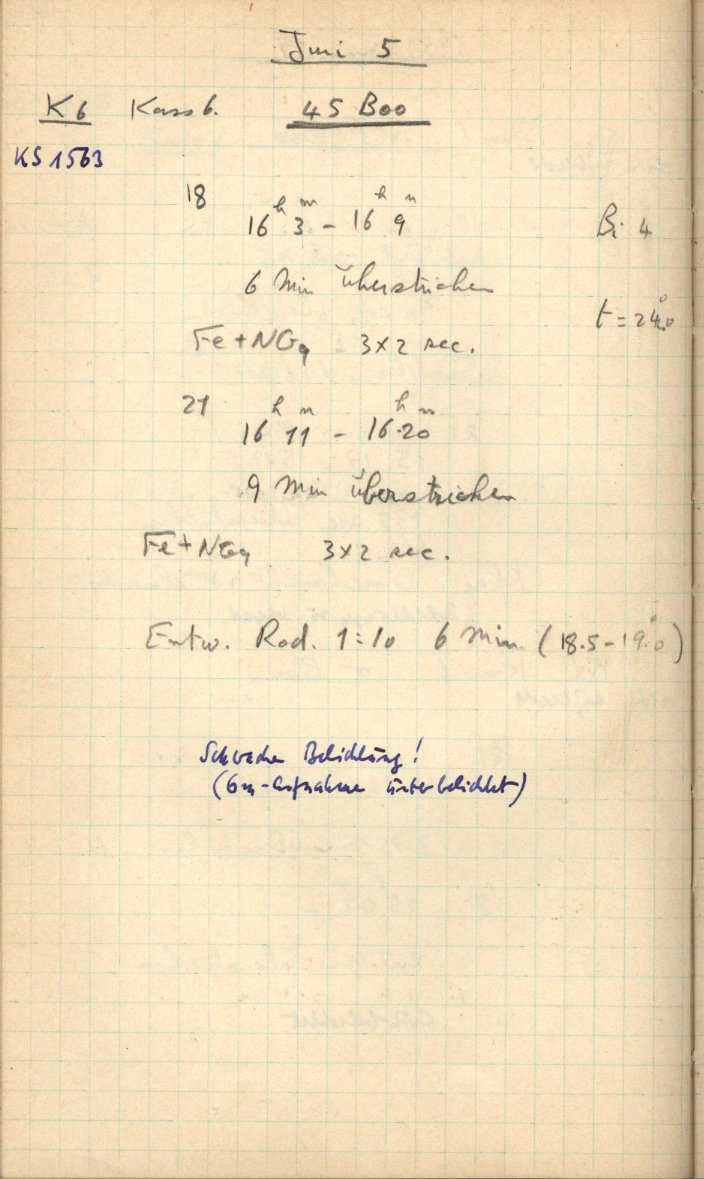 Juni 5
K6 Kass 6. 45 Boo
KS 1563
18
16h 3m - 16h 9m Bi 4
6 Min überstrichen
t = 24°.0
Fe + NGg : 3x2 sec.
21
16h 11m - 16h 20m
9 Min überstrichen
Fe + NGg 3x2 sec.
Entw. Rod. 1:10 6 Min. (18.5 - 19°.0)
Schwache Belichtung!
(6m-Aufnahme unterbelichtet)